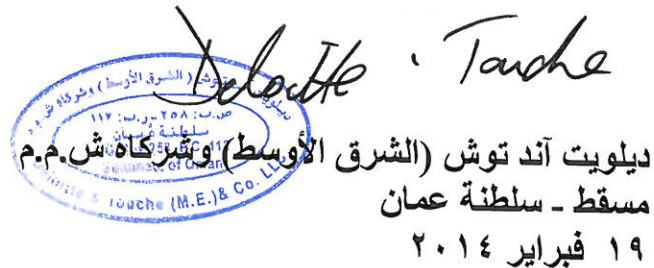 Deloitte & Touche
ديلويت آند توش (الشرق الأوسط) وشركاه ش.م.م
ص.ب: ٢٥٨ - ر.ب: ١١٢
سلطنة عمان
Sultanate of Oman
Deloitte & Touche (M.E.) & Co. LLC
ديلويت آند توش (الشرق الأوسط) وشركاه ش.م.م
مسقط - سلطنة عمان
١٩ فبراير ٢٠١٤